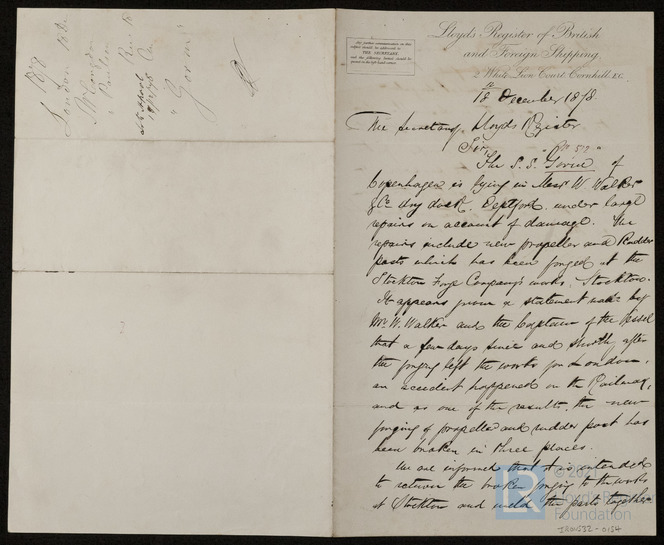 Lloyd's Register of British
and Foreign Shipping.
2, White Lion Court, Cornhill, E.C.
18th December 1878.
The Secretary, Lloyds Register
Sir,
The S.S. "Gorm" of
Copenhagen is lying in Messr W Walker
& Co. dry dock, Deptford, under large
repairs on account of damage. The
repairs include new propeller and Rudder
posts which has been forged at the
Stockton Forge Company's works, Stockton.
It appears from a statement made by
Mr. W. Walker and the Captain of the Vessel
that a few days since and shortly after
the forging left the works for London,
an accident happened on the Railway,
and as one of the results, the new
forging of propeller and rudder post has
been broken in three places.
We are informed that it is intended
to return the broken forging to the works
at Stockton and weld the parts together
THE SECRETARY
1878
London
"Gorm"
© 20
Foundation
IRON532-0154